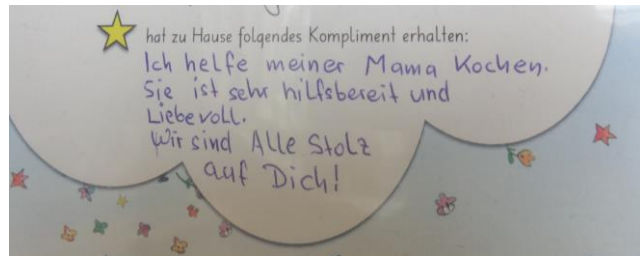 hat zu Hause folgendes Kompliment erhalten:
Ich helfe meiner Mama Kochen.
Sie ist sehr hilfsbereit und
Liebevoll.
Wir sind Alle Stolz
auf Dich!